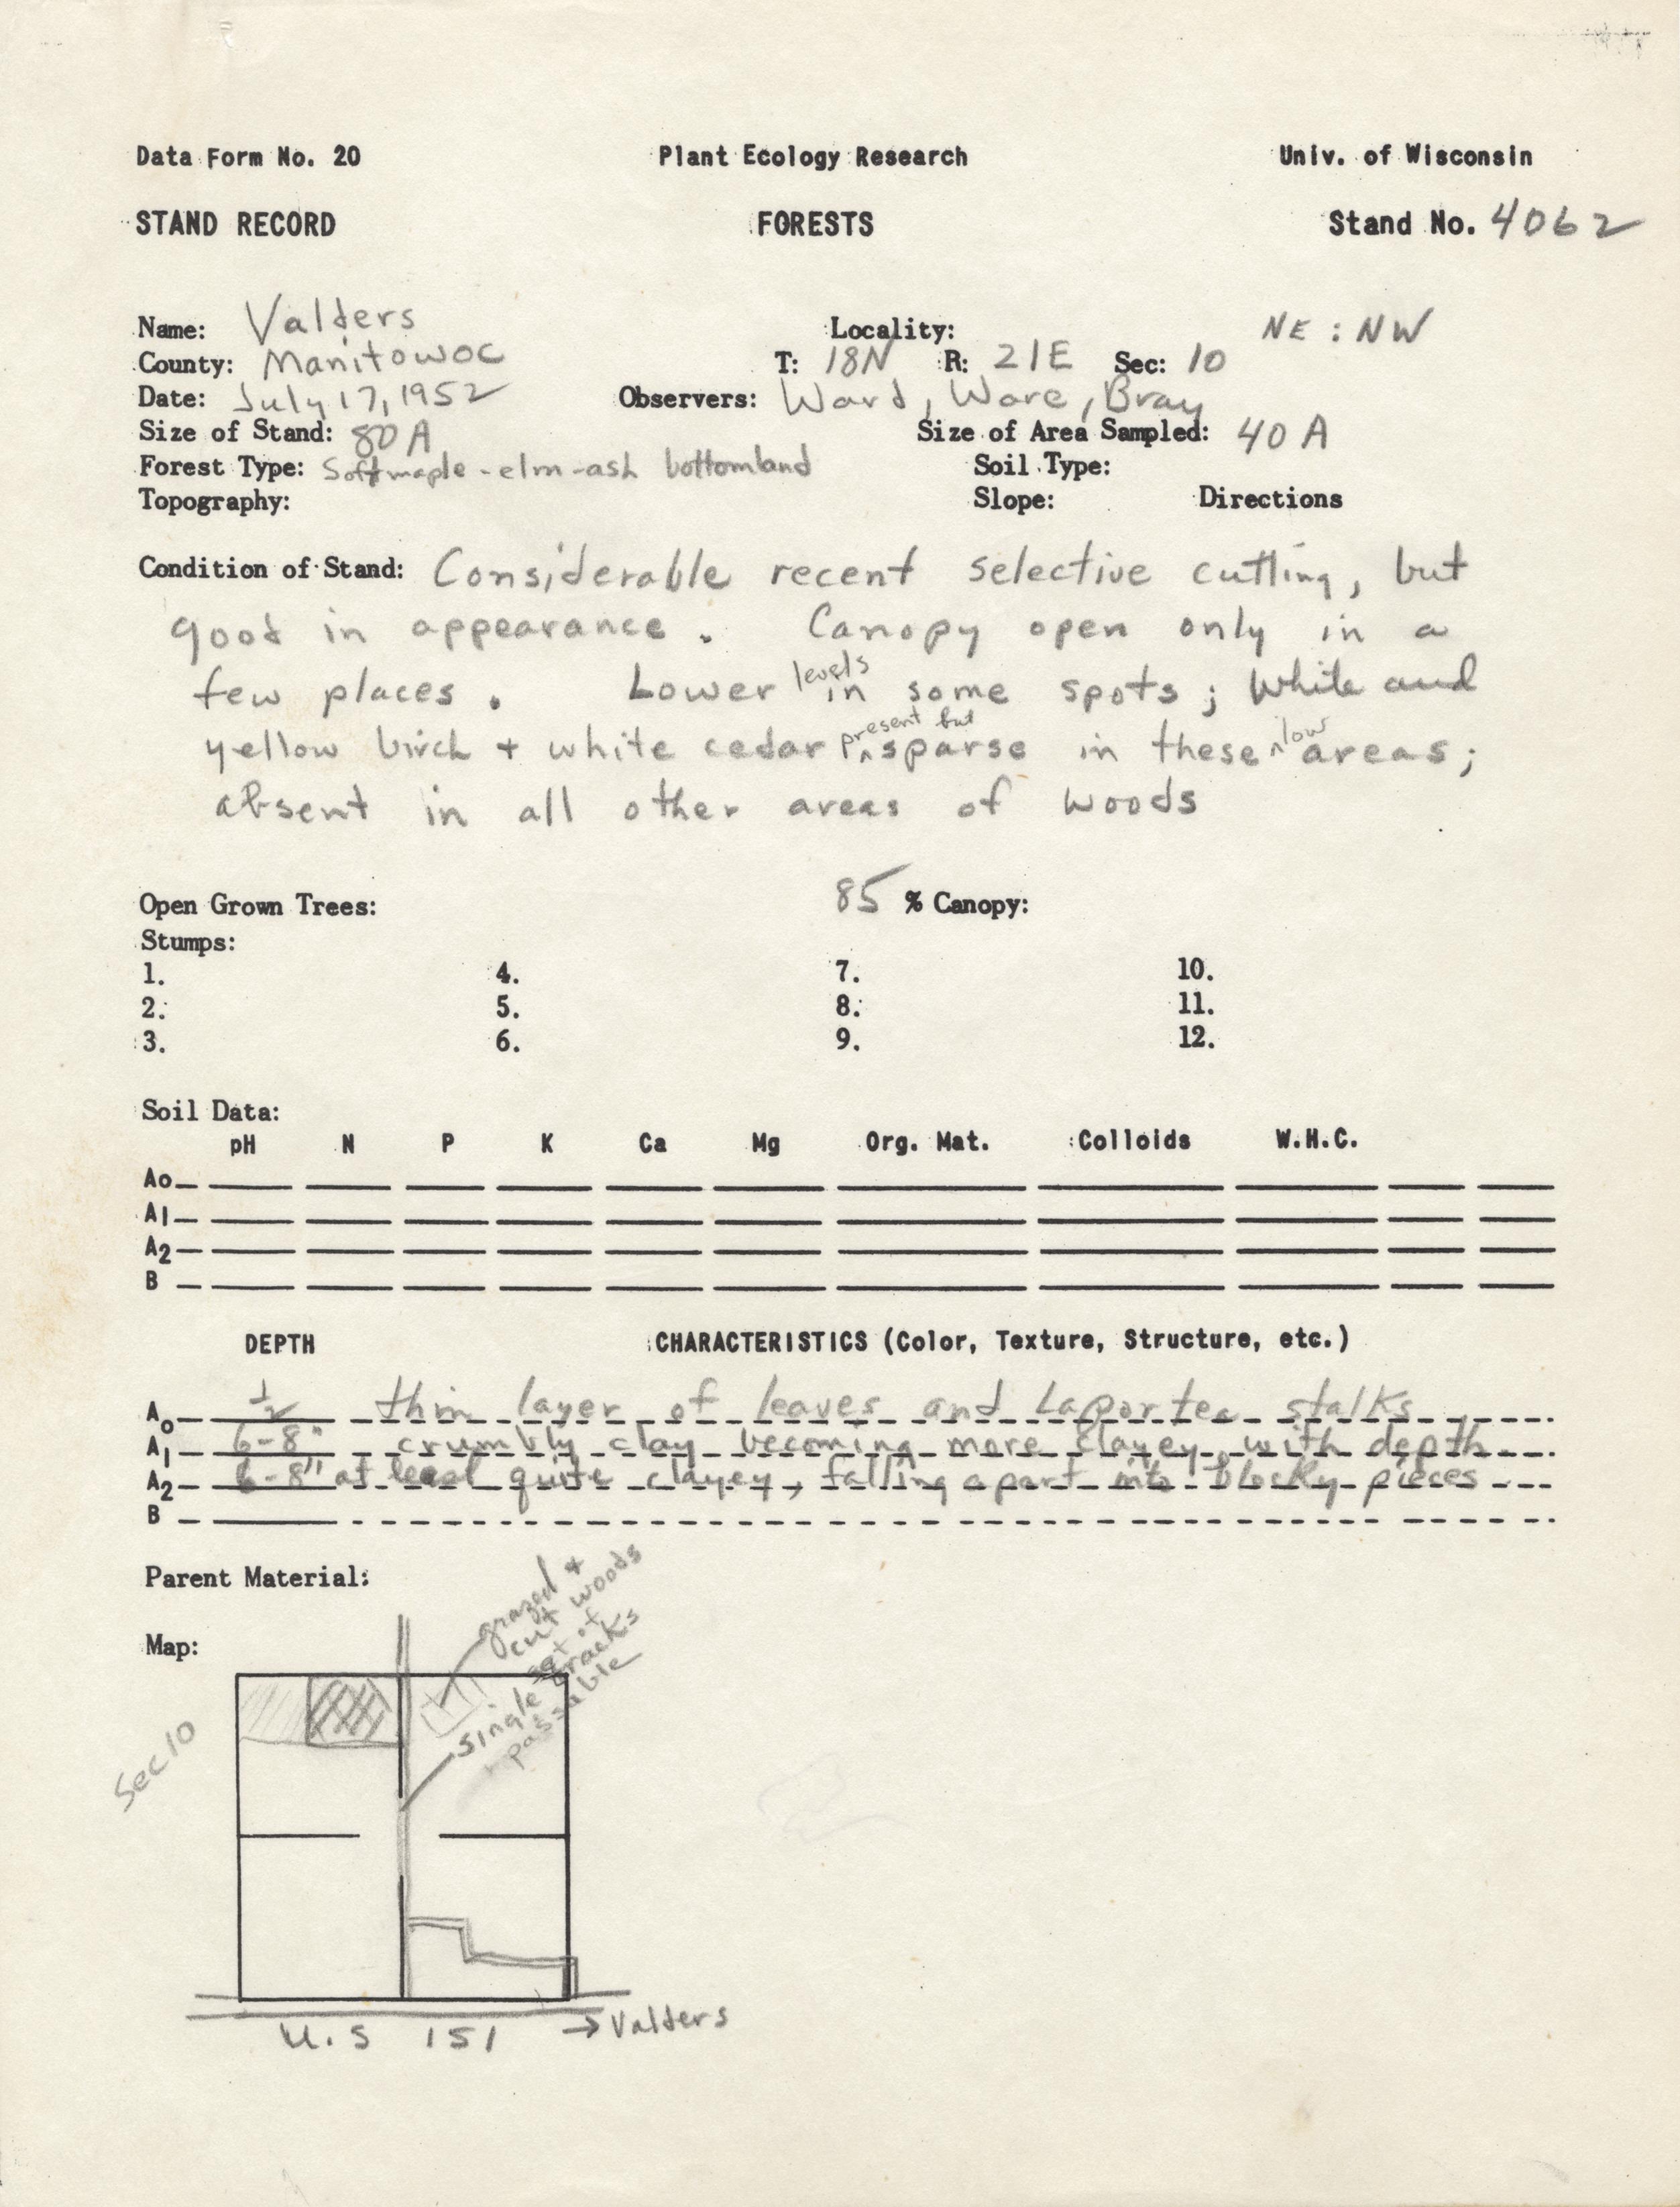 Data Form No. 20 Plant Ecology Research Univ. of Wisconsin
STAND RECORD FORESTS Stand No. 4062
Name: Valders Locality: NE : NW
County: Manitowoc T: 18N R: 21E Sec: 10
Date: July 17, 1952 Observers: Ward, Ware, Bray
Size of Stand: 80 A Size of Area Sampled: 40 A
Forest Type: Soft maple - elm - ash bottomland Soil Type:
Topography: Slope: Directions
Condition of Stand: Considerable recent selective cutting, but
good in appearance. Canopy open only in a
few places. Lower levels in some spots; White and
yellow birch + white cedar present but sparse in these low areas;
absent in all other areas of woods
Open Grown Trees: 85 % Canopy:
Stumps:
1. 4. 7. 10.
2. 5. 8. 11.
3. 6. 9. 12.
Soil Data:
pH N P K Ca Mg Org. Mat. Colloids W.H.C.
Ao
A1
A2
B
DEPTH CHARACTERISTICS (Color, Texture, Structure, etc.)
Ao 1/2 thin layer of leaves and Laportea stalks
A1 6-8" crumbly clay becoming more clayey with depth
A2 6-8" at least quite clayey, falling apart into blocky pieces
B
Parent Material:
Map:
grazed +
cut woods
single set of
tracks
passable
Sec 10
U.S 151 → Valders